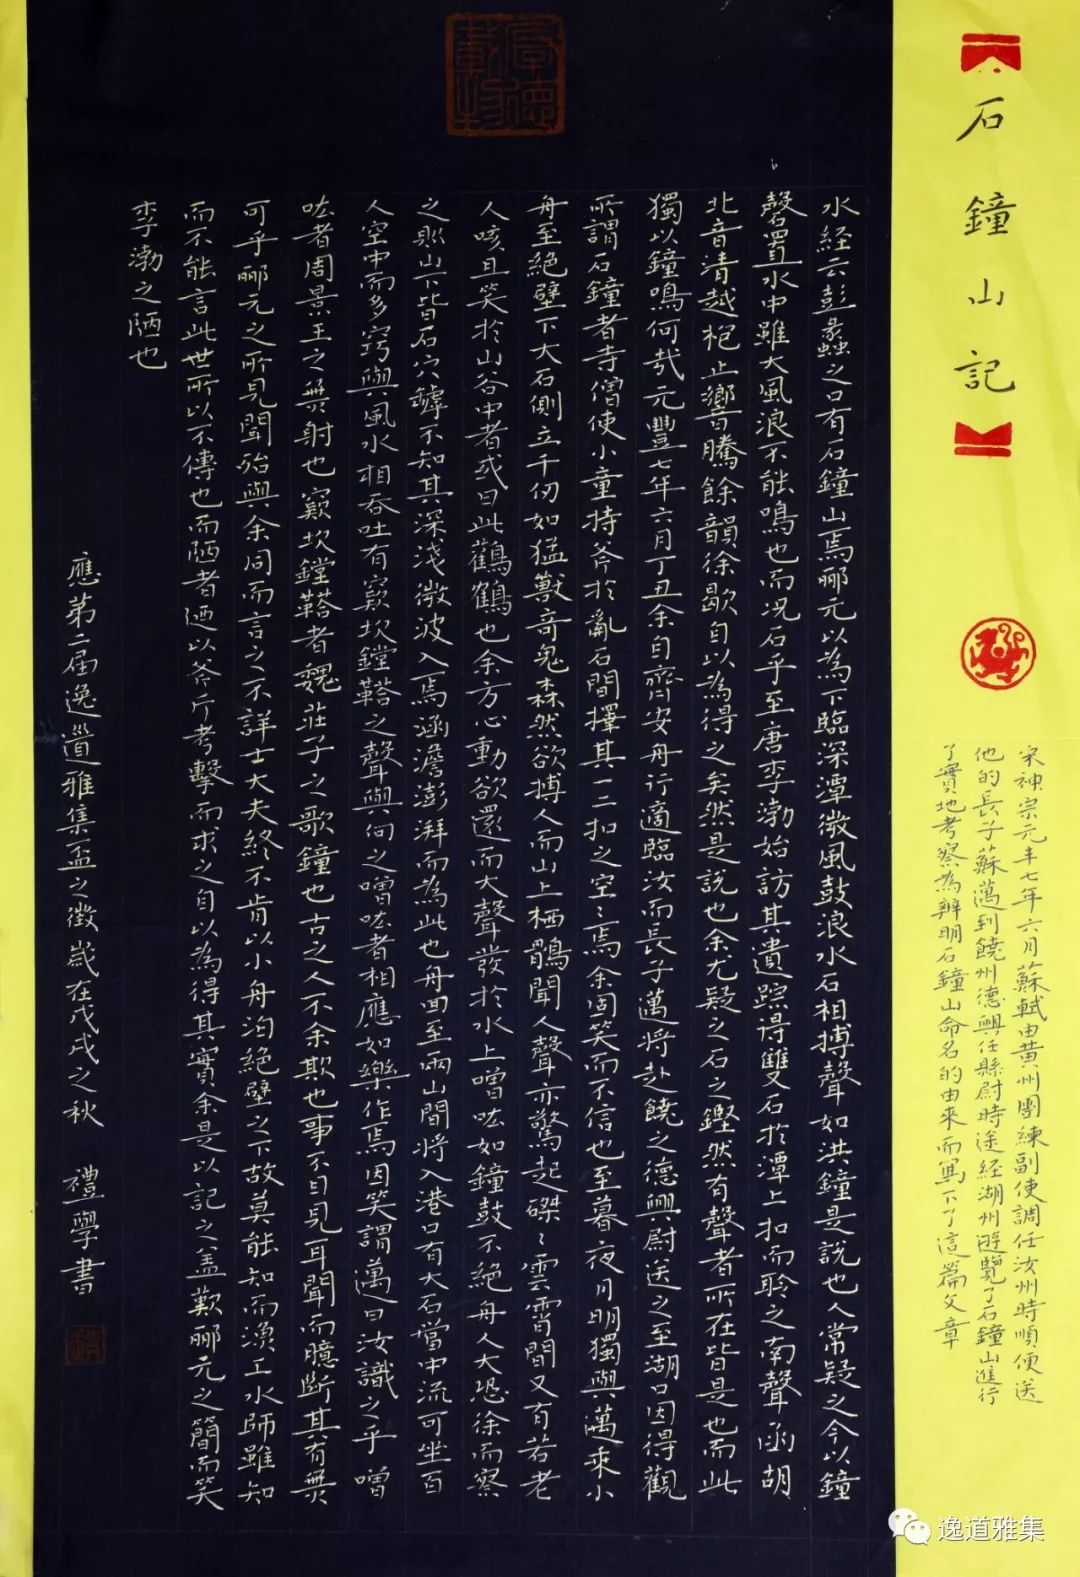 石鐘山記
宋神宗元丰七年六月蘇軾由黄州團練副使調任汝州時順便送
他的長子蘇邁到饒州德興任縣尉時途経湖州遊覽了石鐘山進行
了實地考察為辨明石鐘山命名的由来而寫下了這篇文章
水経云彭蠡之口有石鐘山焉郦元以為下臨深潭微風鼓浪水石相搏聲如洪鐘是說也人常疑之今以鐘
磬置水中雖大風浪不能鳴也而况石乎至唐李渤始訪其遺踪得雙石於潭上扣而聆之南聲函胡
北音清越枹止響騰餘韻徐歇自以為得之矣然是說也余尤疑之石之鏗然有聲者所在皆是也而此
獨以鐘鳴何哉元豐七年六月丁丑余自齊安舟行適臨汝而長子邁将赴饒之德興尉送之至湖口因得觀
所謂石鐘者寺僧使小童持斧於亂石間擇其一二扣之空〻焉余固笑而不信也至暮夜月明獨與邁乘小
舟至絕壁下大石側立千仞如猛獸奇鬼森然欲搏人而山上栖鶻聞人聲亦驚起磔〻雲霄間又有若老
人咳且笑於山谷中者或曰此鸛鶴也余方心動欲還而大聲發於水上噌吰如鐘鼓不絕舟人大恐徐而察
之則山下皆石穴罅不知其深淺微波入焉涵澹澎湃而為此也舟回至兩山間将入港口有大石當中流可坐百
人空中而多竅與風水相吞吐有窾坎鏜鞳之聲與向之噌吰者相應如樂作焉因笑謂邁曰汝識之乎噌
吰者周景王之無射也窾坎鏜鞳者魏莊子之歌鐘也古之人不余欺也事不目見耳聞而臆斷其有無
可乎郦元之所見聞殆與余同而言之不詳士大夫終不肯以小舟泊絕壁之下故莫能知而漁工水師雖知
而不能言此世所以不傳也而陋者迺以斧斤考擊而求之自以為得其實余是以記之盖歎郦元之簡而笑
李渤之陋也
應第二届逸道雅集盃之徵歲在戊戌之秋 禮學書
逸道雅集